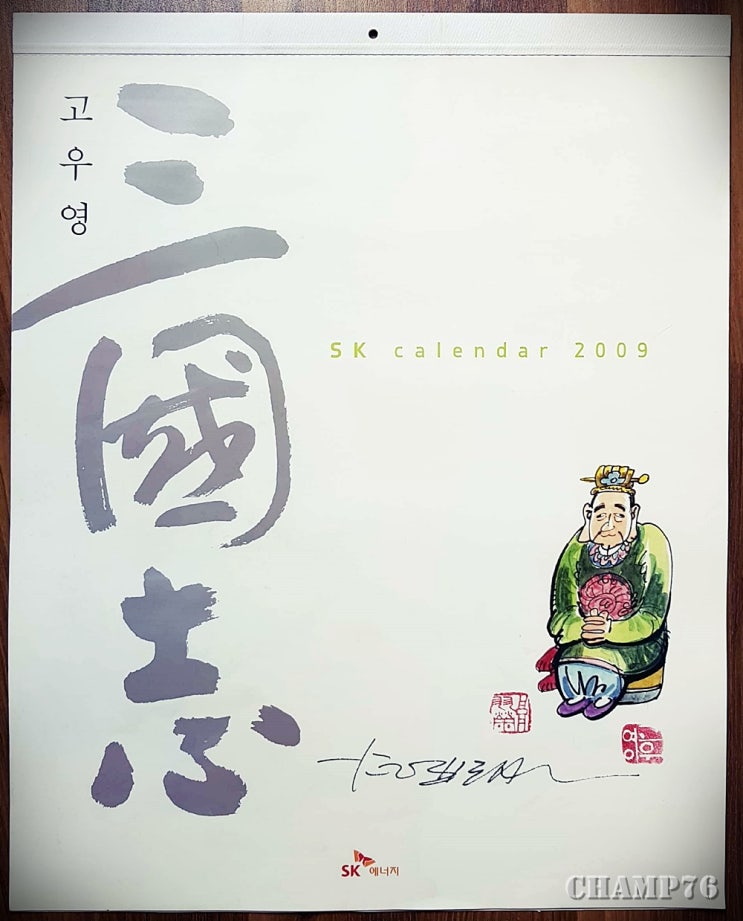 고우영
三國志
SK calendar 2009
SK 에너지
CHAMP76